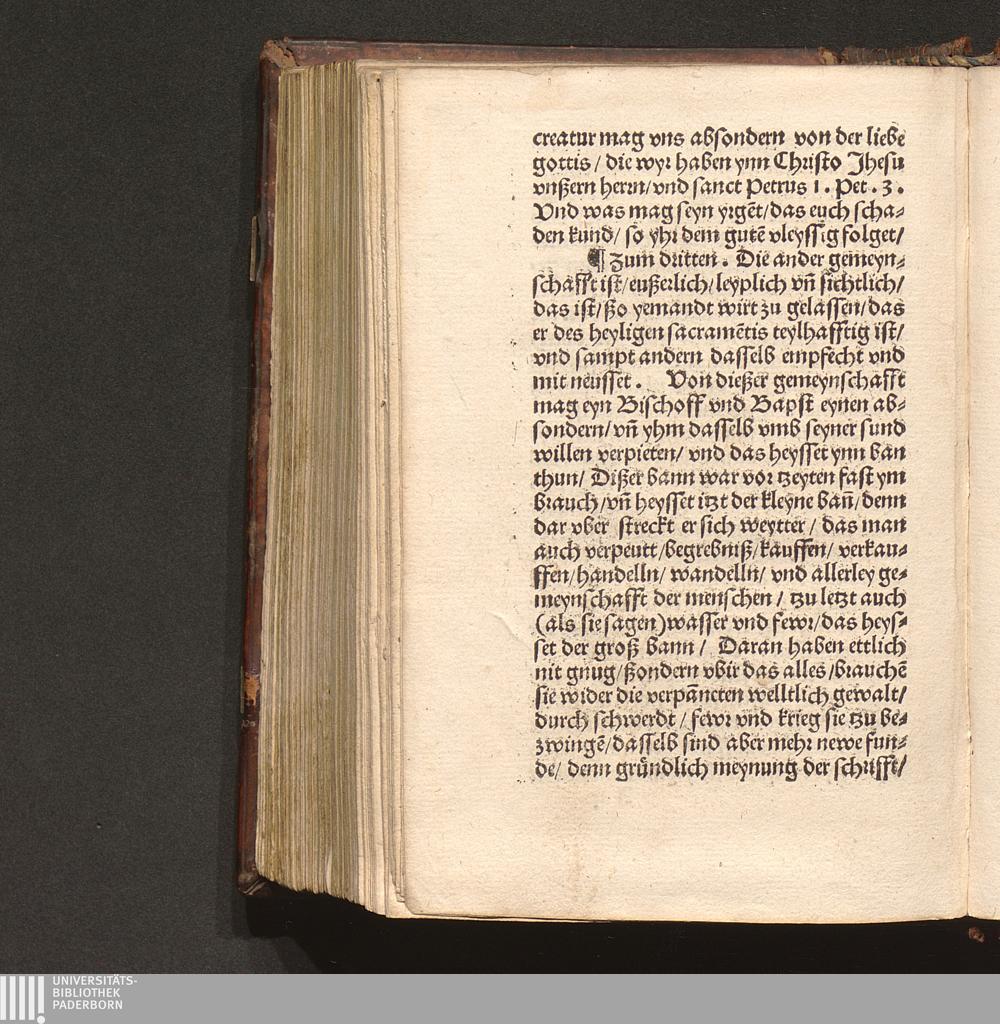 creatur mag vns absondern von der liebe
gottis / die wyr haben ynn Christo Jhesu
vnßern herrn/vnd sanct Petrus 1. Pet. 3.
Vnd was mag seyn yrgēt/das euch scha-
den kund/ so yhr dem gutē vleyssig folget/
¶ Zum dritten. Die ander gemeyn-
schafft ist/eußerlich/leyplich vn̄ sichtlich/
das ist/ßo yemandt wirt zu gelassen/das
er des heyligen sacramētis teylhafftig ist/
vnd sampt andern dasselb empfecht vnd
mit neusset. Von dießer gemeynschafft
mag eyn Bischoff vnd Bapst eynen ab-
sondern/vn̄ yhm dasselb vmb seyner sund
willen verpieten/ vnd das heysset ynn ban
thun/ Dißer bann war vor tzeyten fast ym
brauch/vn̄ heysset itzt der kleyne ban̄/denn
dar vber streckt er sich weytter/ das man
auch verpeutt/begrebniß/kauffen/ verkau-
ffen/handelln/ wandelln/ vnd allerley ge-
meynschafft der menschen / tzu letzt auch
(als sie sagen)wasser vnd fewr/das heys-
set der groß bann / Daran haben ettlich
nit gnug/ßondern vbir das alles/brauchē
sie wider die verpan̄cten welltlich gewalt/
durch schwerdt / fewr vnd krieg sie tzu be-
zwingē/dasselb sind aber mehr newe fun-
de/ denn gründlich meynung der schrifft/
UNIVERSITÄTS-
BIBLIOTHEK
PADERBORN